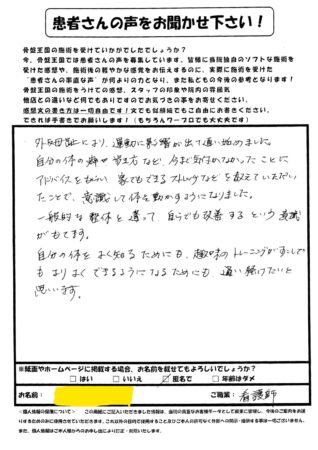 患者さんの声をお聞かせ下さい！
骨盤王国の施術を受けていかがでしたでしょうか？
今、骨盤王国では患者さんの声を募集しています。皆様に当院独自のソフトな施術を
受けた感想や、施術後の軽やかな感覚をお伝えするのに、実際に施術を受けた
“患者さんの率直な声”が何よりの力となり、また私どもの今後の参考となります！
骨盤王国の施術をうけての感想、スタッフの印象や院内の雰囲気
他店との違いなど何でもありですのでお気づきの事をお寄せください。
感想文の書き方は一切自由です！大でも似顔絵でもご自由にお書きください。
できれば手書きでお願いします！（もちろんワープロでも大丈夫です）
外反母趾により、運動に影響が出て通い始めました。
自分の体の癖や歩き方など、今まで気付かなかったことに
アドバイスをもらい、家でもできるストレッチなどを教えていただい
たことで、意識して体を動かすようになりました。
一般的な整体と違って、自らでも改善するという意識
がもてます。
自分の体をよく知るためにも、趣味のトレーニングがすこしで
もよりよくできるようになるためにも、通い続けたいと
思います。
※紙面やホームページに掲載する場合、お名前を載せてもよろしいでしょうか？
□はい □いいえ ☑匿名で □年齢はダメ
お名前： ご職業： 看護師
＜個人情報の保護について＞ この用紙にご記入いただきました情報は、当院の貴重なお客様データとして厳重に管理し、今後のご案内をお送
りするためのみに使用させていただきます。これ以外の目的で使用すること及びご本人の許可なく外部への開示・提供する事は一切ございません。
また、個人情報はご本人様からのお申し出により訂正・削除いたします。